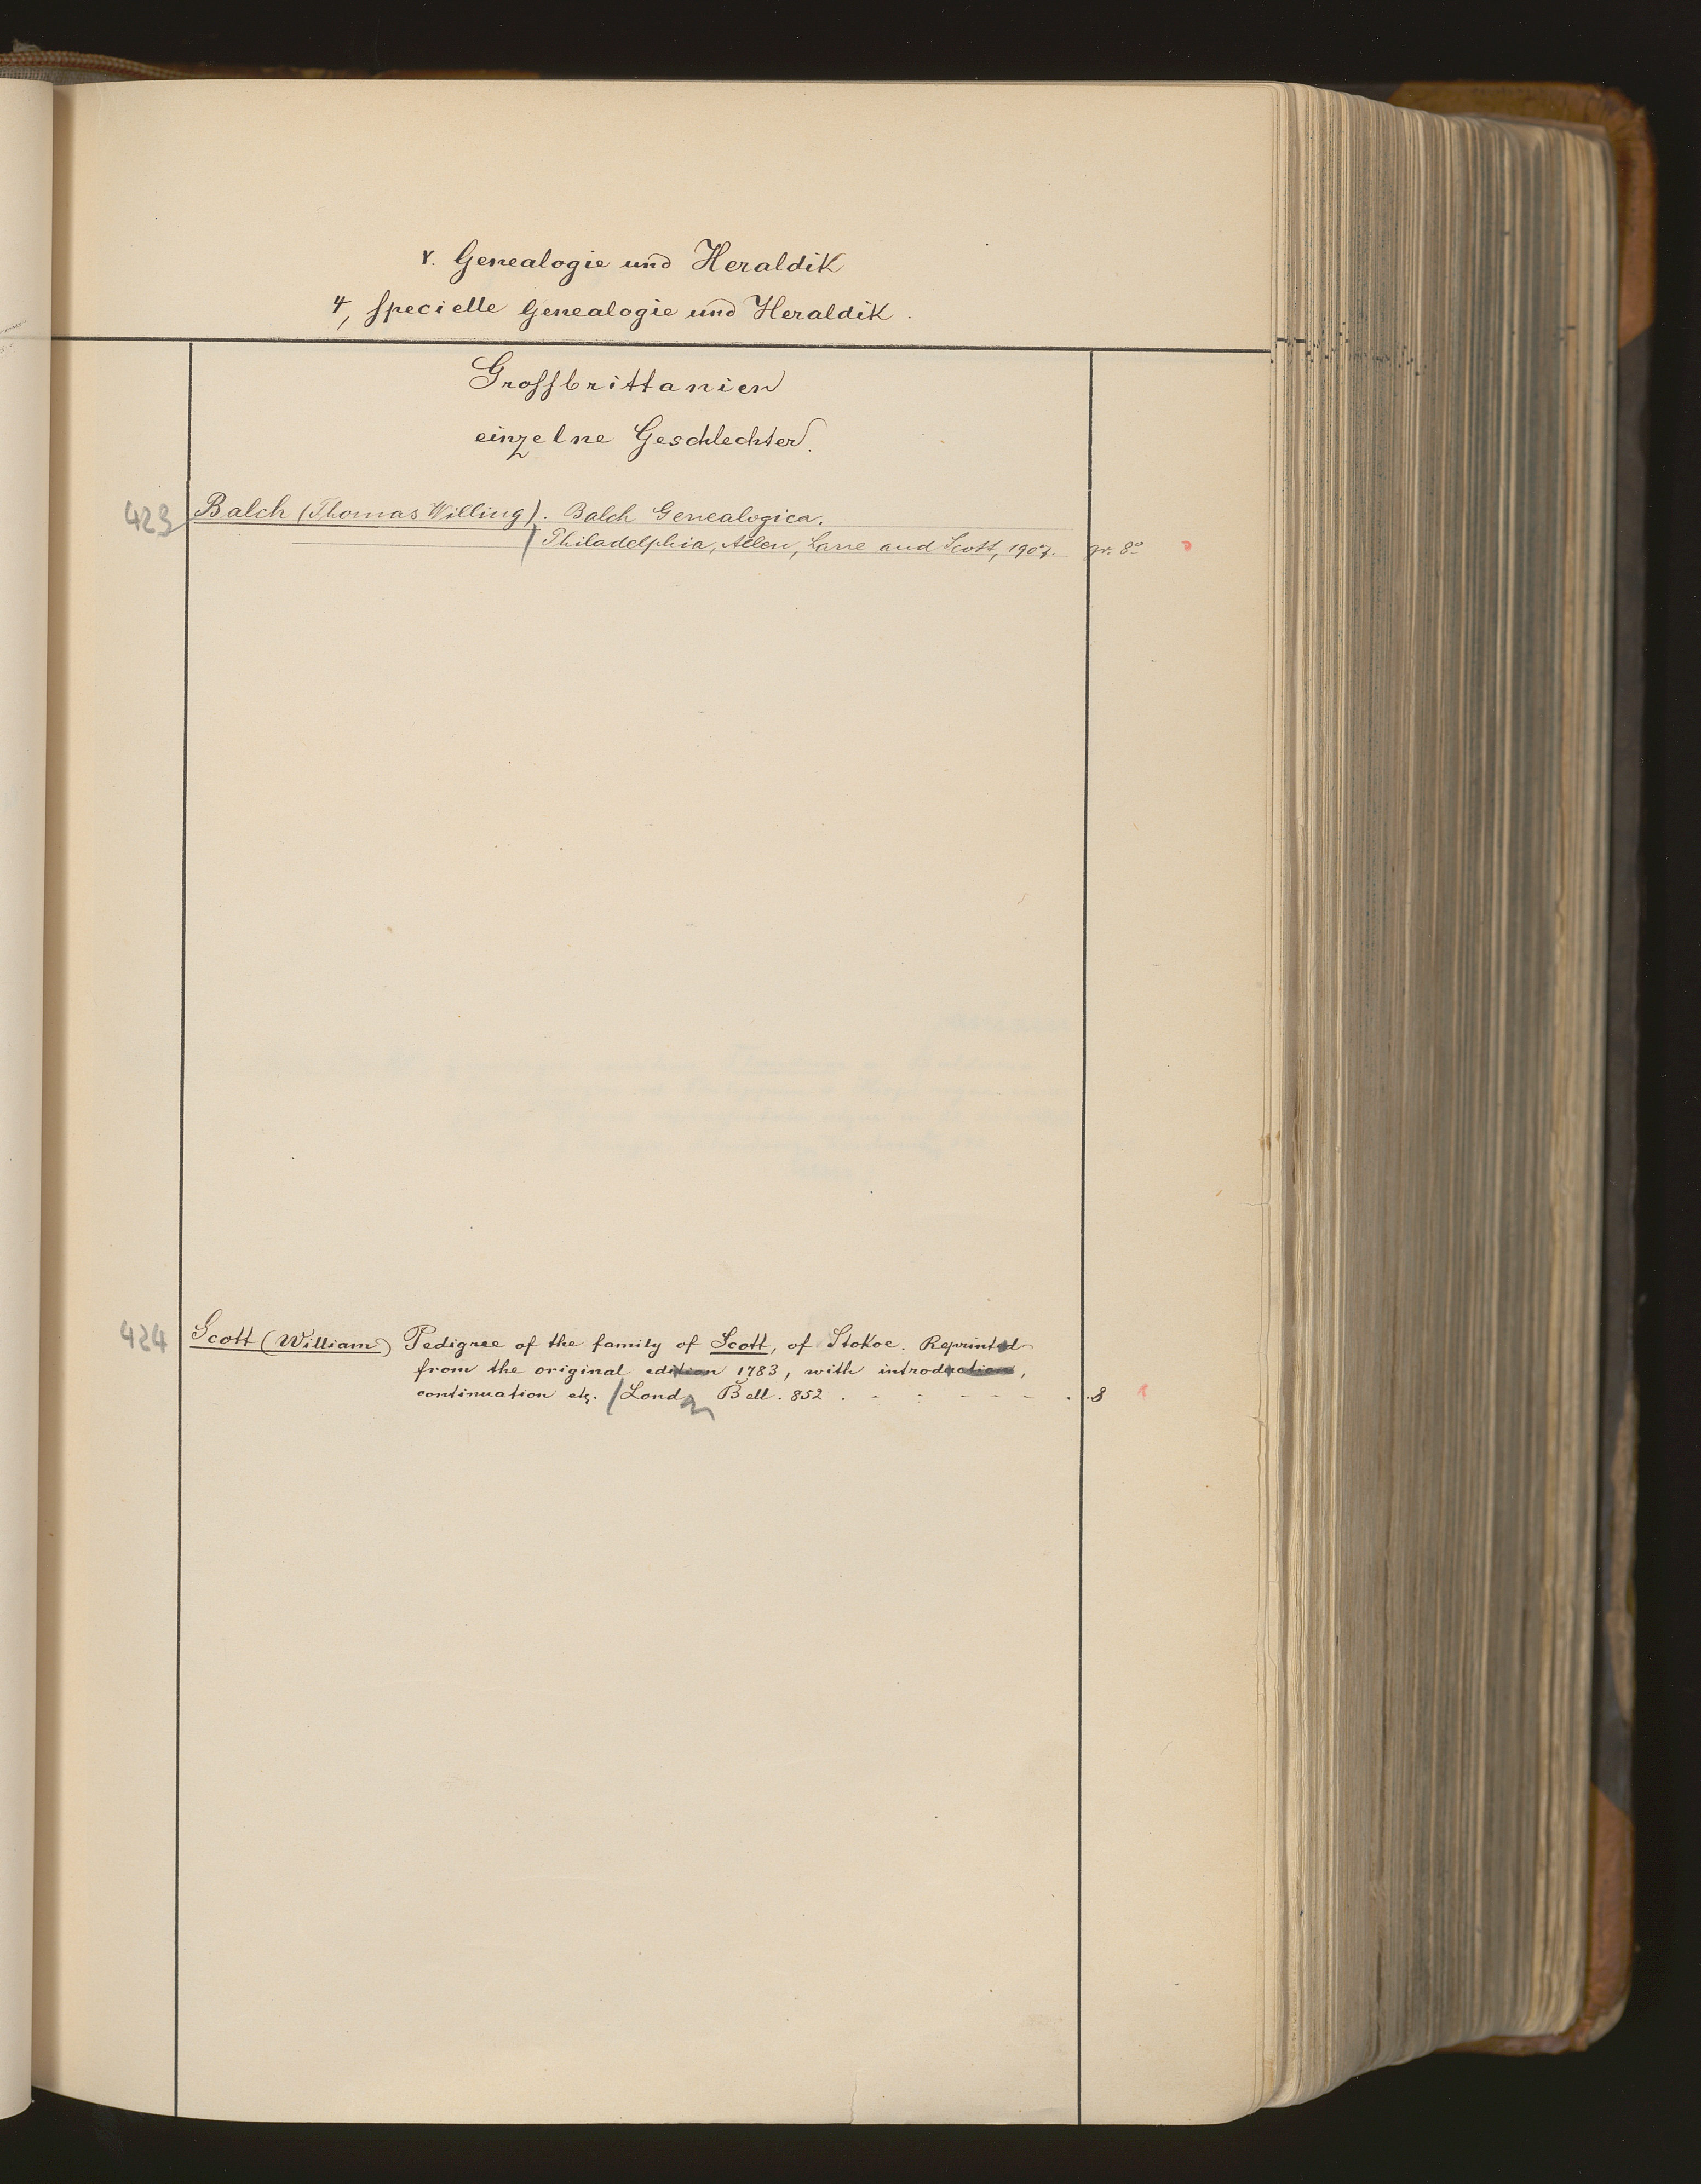 r. Genealogie und Heraldik
4, specielle Genealogie und Heraldik.
Grossbrittanien
einzelne Geschlechter.
423 Balch (Thomas Willing). Balch Genealogica.
Philadelphia, Allen, Lane and Scott, 1907. gr. 8°
424 Scott (William) Pedigree of the family of Scott, of Stokoe. Reprinted
from the original edition 1783, with introduction,
continuation etc. Lond. Bell. 852 . - . - - - - . . 8